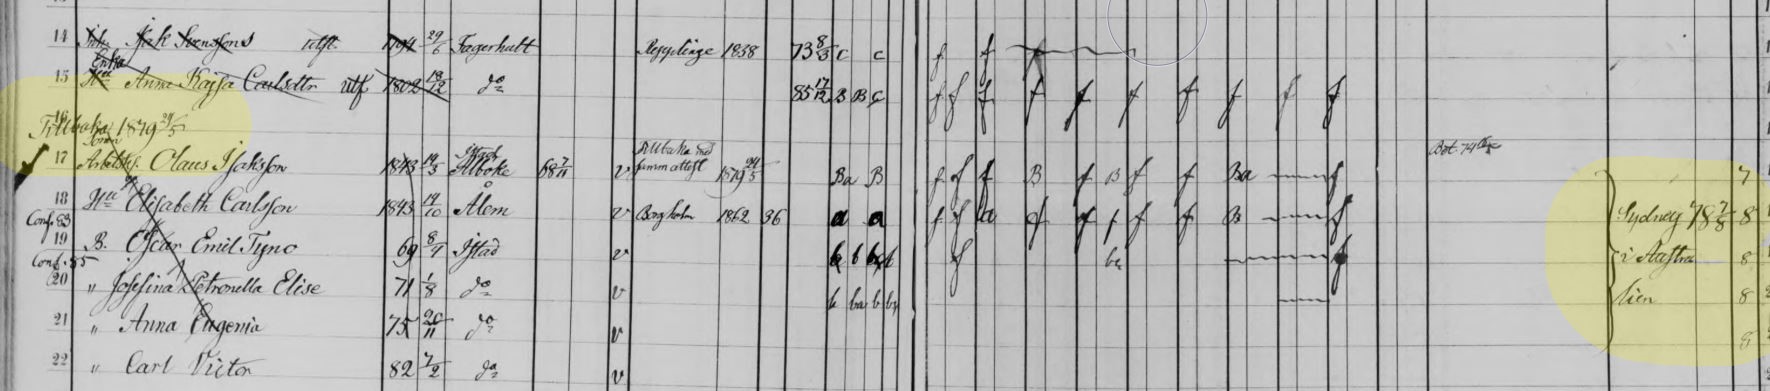 14 Isak Svenssons utfl. 1794 29/6 Fagerhult Repplinge 1838 73 8/3 c c f f
Enka
15 Anna Kajsa Carlsdtr utf 1802 18/12 do 85 17/12 B B c f f f f f f f f f f
16
Tillbaka 1879 24/5
17 Claus Isaksson 1843 14/3 Alboke 68 7/11 v Tillbaka med samma attest 1879 24/5 Ba B f f f B f B f f Ba f Bet. 7
18 Hu Elisabeth Carlsson 1843 14/10 Ålem v Borgholm 1862 36 a a f f a f f f f f B f Sydney 78 7/8 8
Conf. 83
19 B. Oscar Emil Tyno 69 8/4 Istad v b b f ba f i Austra 8
Conf. 85
20 " Josefina Petronella Elise 71 1/8 do v b ba b ba lien 8
21 " Anna Eugenia 75 20/11 do v
22 " Carl Victor 82 7/2 do v